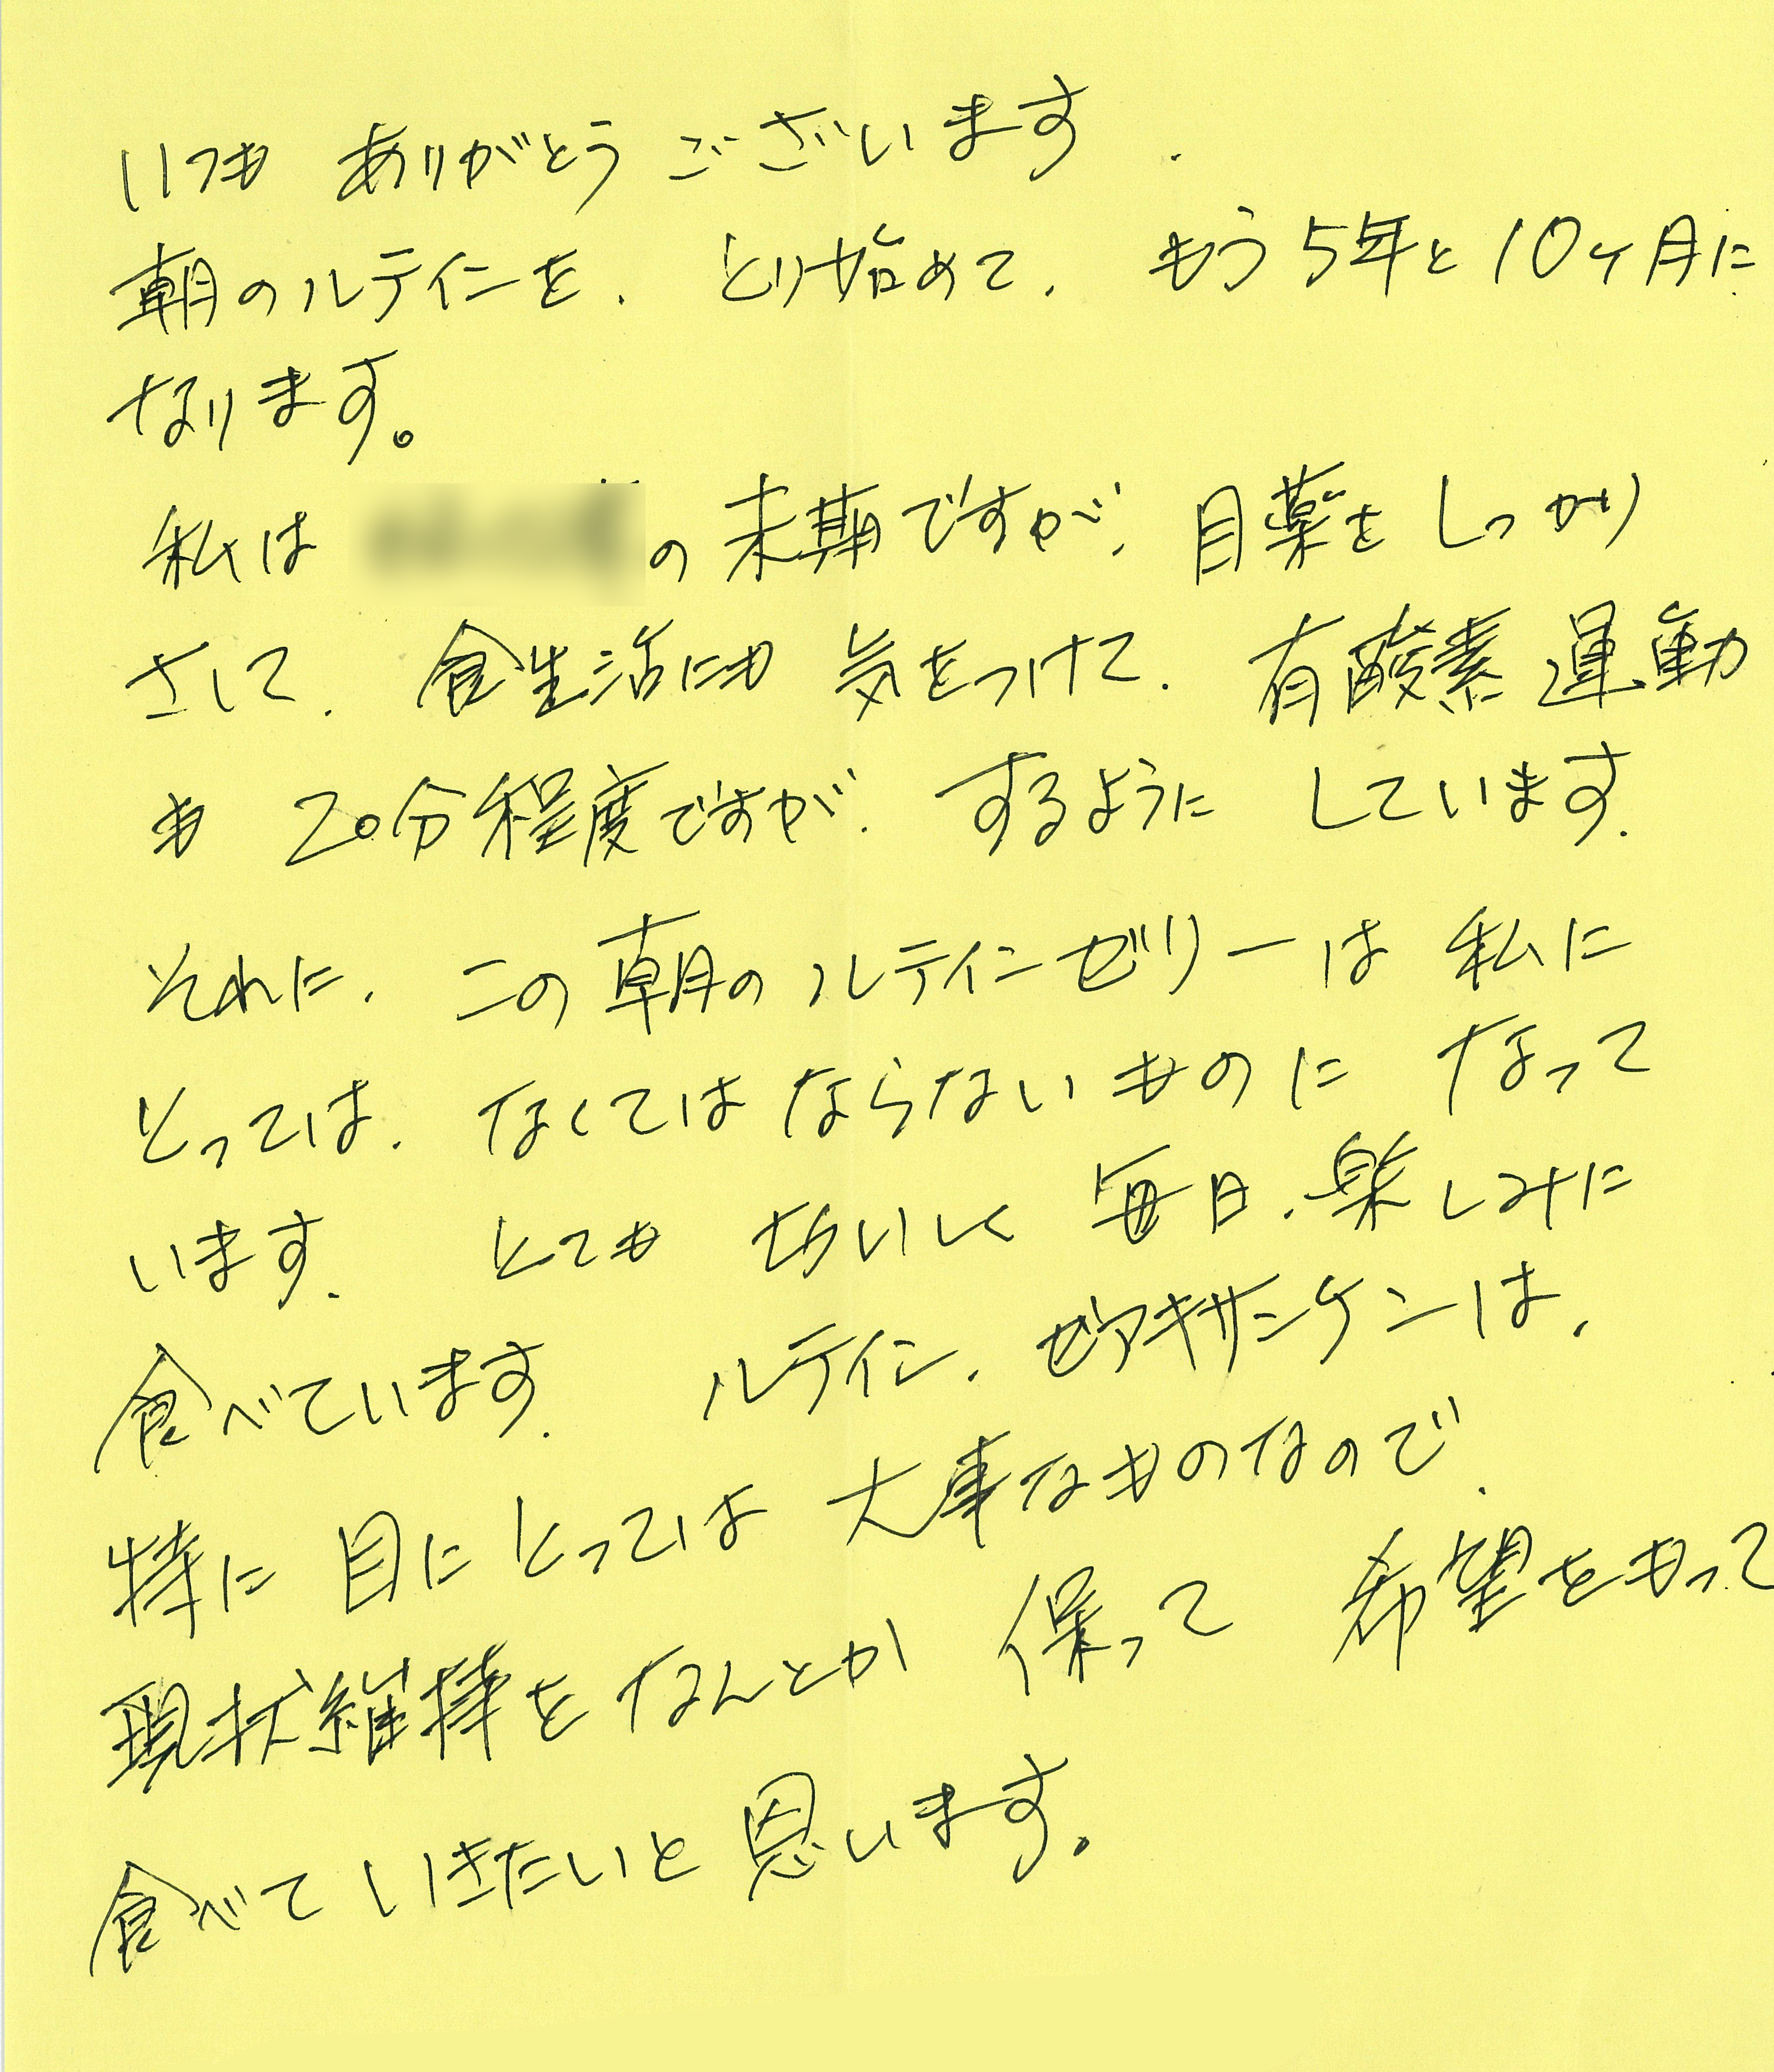 いつも ありがとう ございます.
朝のルテインを、とり始めて、もう5年と10ヶ月に
なります。
私は の末期ですが、目薬をしっかり
さして、食生活にも 気をつけて、有酸素運動
も 20分程度ですが、するように しています.
それに、この朝のルテインゼリーは 私に
とっては、なくてはならないものに なって
います. とても おいしく 毎日、楽しみに
食べています. ルテイン、ゼアキサンチンは、
特に 目にとっては 大事なものなので、
現状維持をなんとか 保って 希望をもって
食べて いきたいと 思います。